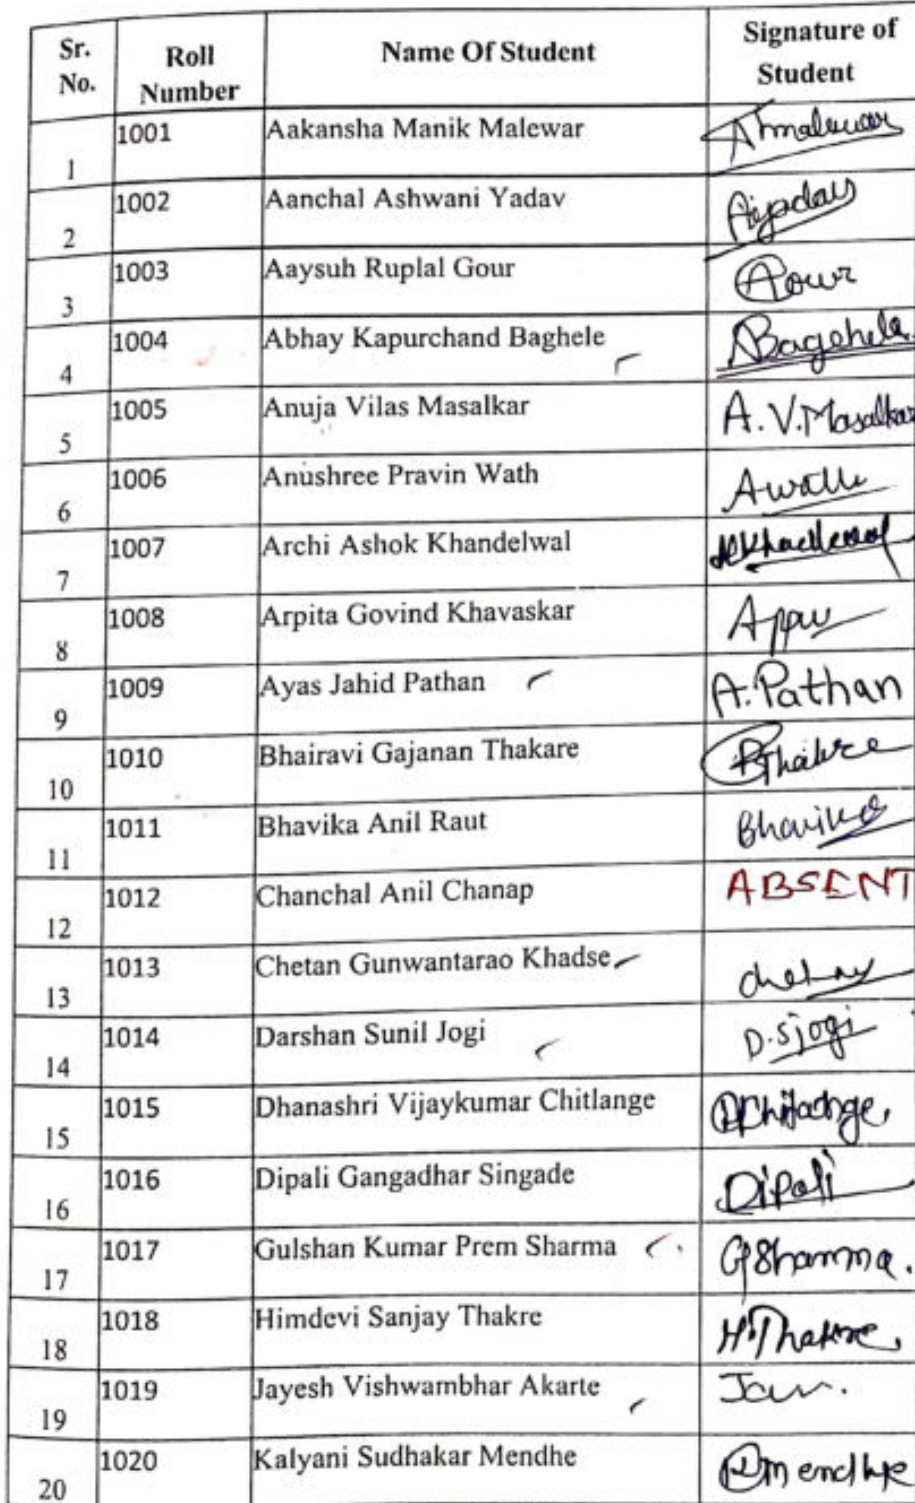 Sr. No. Roll Number Name Of Student Signature of Student
1 1001 Aakansha Manik Malewar Amalewar
2 1002 Aanchal Ashwani Yadav
3 1003 Aaysuh Ruplal Gour Gour
4 1004 Abhay Kapurchand Baghele Bagehele
5 1005 Anuja Vilas Masalkar A.V.Masalkar
6 1006 Anushree Pravin Wath
7 1007 Archi Ashok Khandelwal
8 1008 Arpita Govind Khavaskar
9 1009 Ayas Jahid Pathan A.Pathan
10 1010 Bhairavi Gajanan Thakare
11 1011 Bhavika Anil Raut Bhavika
12 1012 Chanchal Anil Chanap ABSENT
13 1013 Chetan Gunwantarao Khadse chetan
14 1014 Darshan Sunil Jogi D.Sjogi
15 1015 Dhanashri Vijaykumar Chitlange
16 1016 Dipali Gangadhar Singade Dipali
17 1017 Gulshan Kumar Prem Sharma
18 1018 Himdevi Sanjay Thakre H.Thakre
19 1019 Jayesh Vishwambhar Akarte
20 1020 Kalyani Sudhakar Mendhe